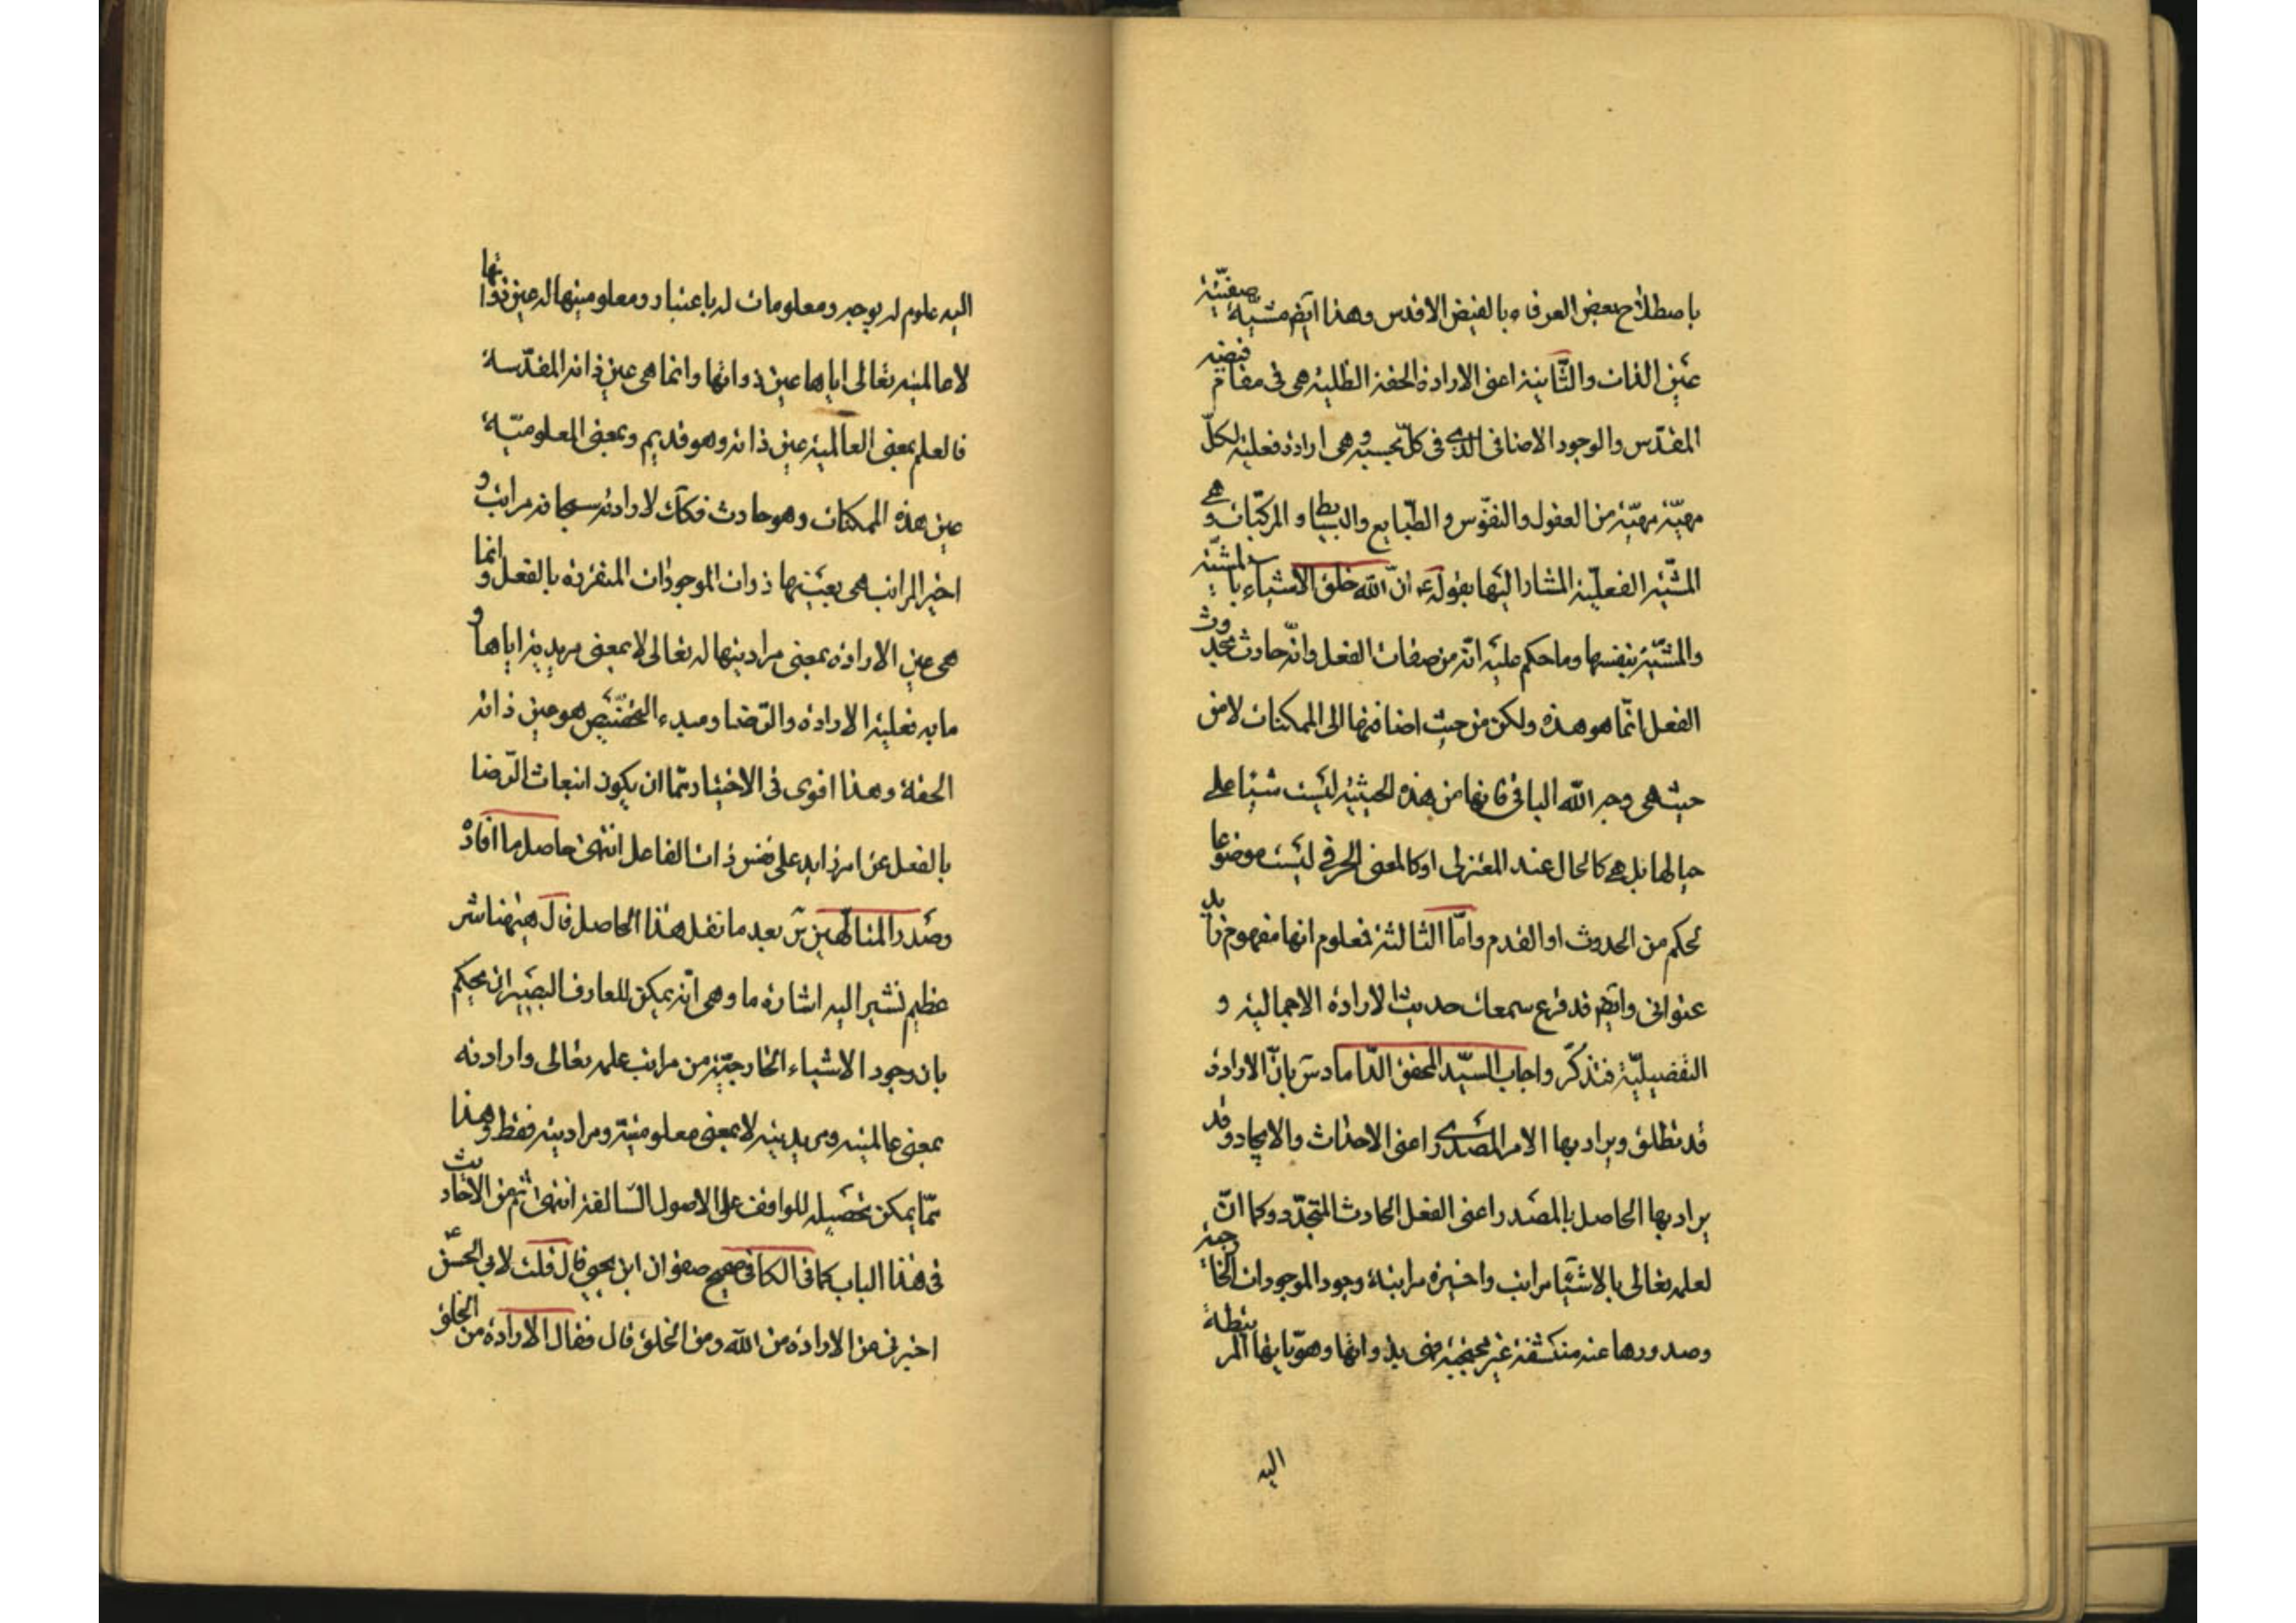 باصطلاح بعض العرفاء بالفيض الاقدس وهذا ايضم مشيّة صفتيّة
عين الذات والثّانية اعنى الارادة الحقة الظلية هى فى مقام فيضه
المقدّس والوجود الاضافى الذى فى كلّ بحسبه وهى ارادة فعلية لكلّ
مهيّة مهيّة من العقول والنفّوس والطّبايع والبسايط والمركبّات وهى
المشّية الفعليّة المشار اليّها بقوله ع انّ الله خلق الاشياء بالمشيّة
والمشيّة بنفسها وما حكم عليه انّه من صفات الفعل وانّه حادث بحدوث
الفعل انّما هو هذه ولكن من حيث اضافتها الى الممكنات لا من
حيث هى وجه الله الباقى فانها من هذه الحيثيّة ليست شيئا على
حيالها بل هى كالحال عند المعتزلى او كالمعنى الحرفى ليست موضوعا
لحكم من الحدوث او القدم وامّا الثالثة فمعلوم انها مفهوم زايد
عنوانى وايضم قد قرع سمعك حديث الارادة الاجمالية و
التفصيليّة فتذكّر واجاب السيّد المحقق الدّاماد س بانّ الارادة
قد تطلق ويراد بها الامر المصدرى اعنى الاحداث والايجاد وقد
يراد بها الحاصل بالمصدر اعنى الفعل الحادث المتجدّد وكما انّ
لعلمه تعالى بالاشيّاء مراتب واخيرة مراتبه وجود الموجودات الخارجية
وصدورها عنه منكشفة غير محتجبة فهى بذواتها وهويّاتها المرتبطة
اليه
اليه علوم له بوجه ومعلومات له باعتبار ومعلوميتها له عين ذواتها
لا عالميته تعالى اياها عين ذواتها وانما هى عين ذاته المقدّسة
فالعلم بمعنى العالمية عين ذاته وهو قديم وبمعنى المعلوميّة
عين هذه الممكنات وهو حادث فكك لارادته سبحانه مراتب و
اخير المراتب هى بعينها ذوات الموجودات المتقررة بالفعل وانما
هى عين الارادة بمعنى مراديتها له تعالى لا بمعنى مريديّة اياها و
ما به فعلية الارادة والرّضا ومبدء التخصّيص هو عين ذاته
الحقة وهذا اقوى فى الاختيار ممّا ان يكون انبعاث الرّضا
بالفعل عن امر زايد على نفس ذات الفاعل انتهى حاصل ما افاد
وصدر المتالهين س بعد ما نقل هذا الحاصل قال هيهنا سر
عظيم نشير اليه اشارة ما وهى انّه يمكن للعارف البصير ان يحكم
بان وجود الاشياء الخارجيّة من مراتب علمه تعالى وارادته
بمعنى عالميته ومريديته لا بمعنى معلوميتّه ومراديته فقط وهذا
ممّا يمكن تحصيله للواقف على الاصول السّالفة انتهى ثم من الاحاديث
فى هذا الباب كما فى الكافى صحيح صفوان ابن يحيى قال قلت لابى الحسن ع
اخبرنى عن الارادة من الله ومن الخلق قال فقال الارادة من الخلق